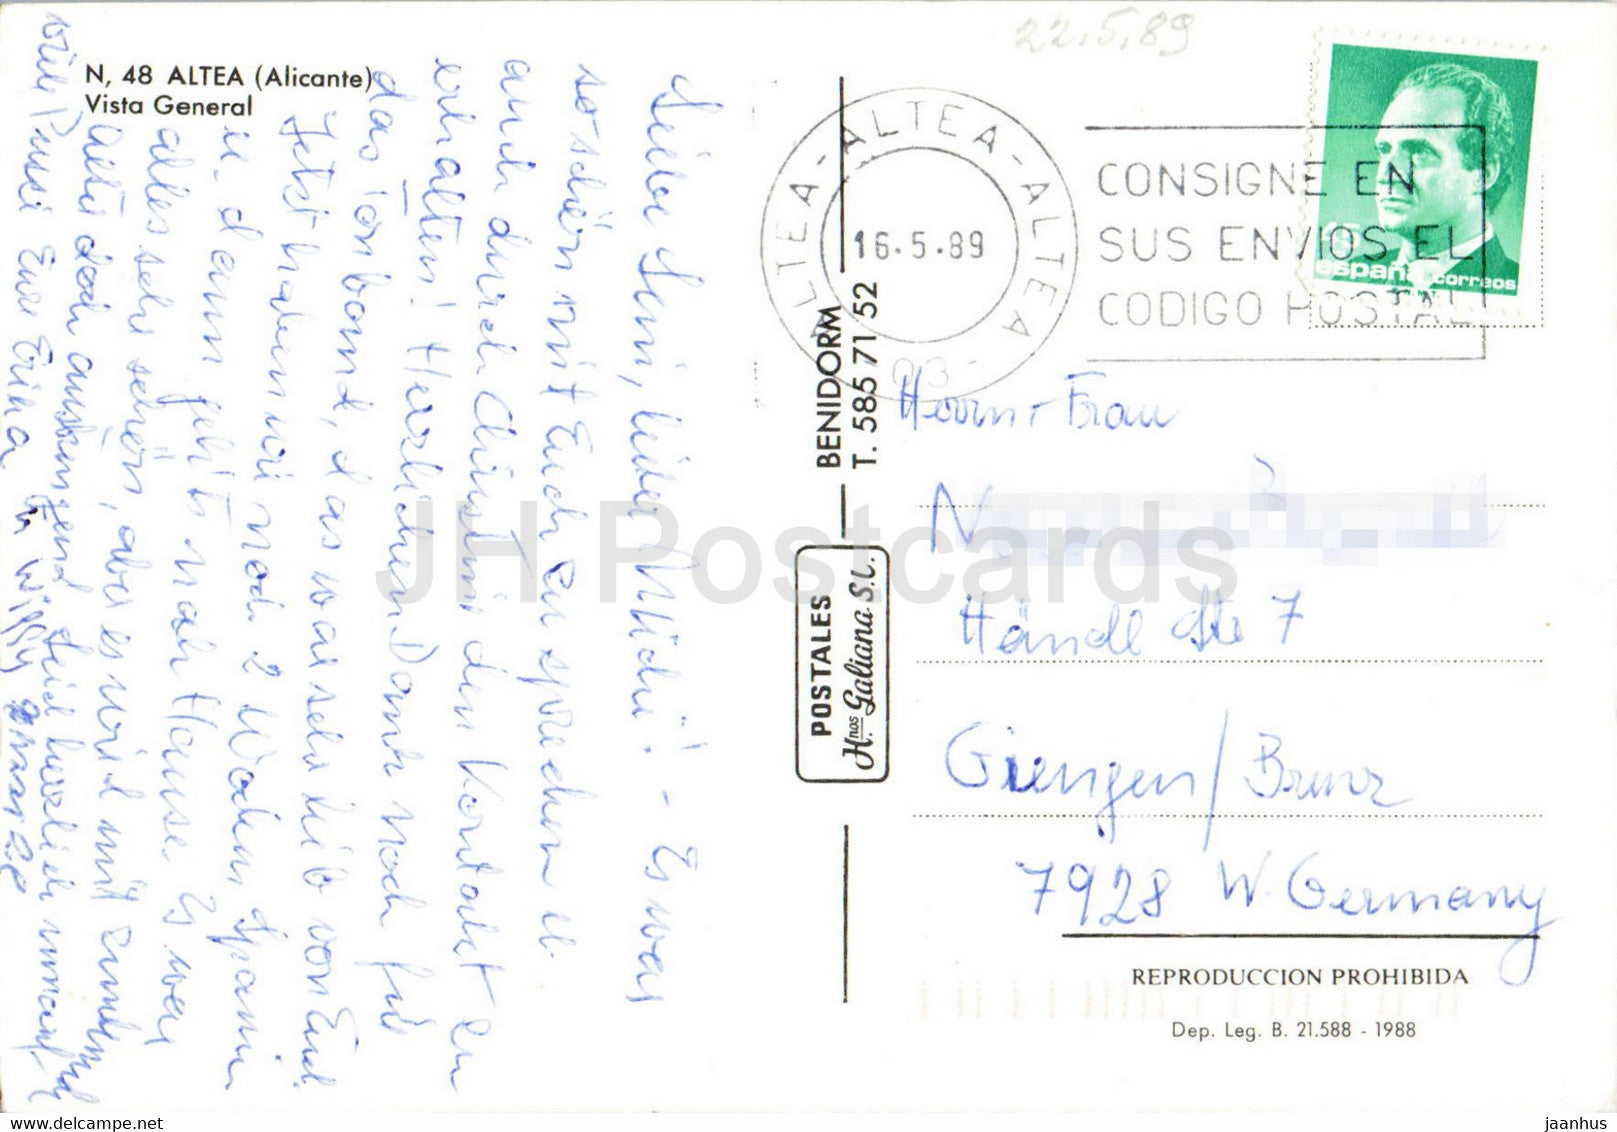 22.5.89
N, 48 ALTEA (Alicante)
Vista General
Lieber Semi, liebe Müdi! - Es war
so schön mit Euch zu sprechen u.
auch durch Christin den Kontakt zu
erhalten! Herzlichen Dank noch für
das Tonband, das war sehr lieb von Euch.
Jetzt haben wir noch 2 Wochen Spanien
u. dann geht's nach Hause. Es war
alles sehr schön, aber es wird mit
doch Seid herzlich umarmt
viele Bussi Eure Erika
ALTEA - ALTEA - ALTEA
16.5.89
03
CONSIGNE EN
SUS ENVIOS EL
CODIGO POSTAL
españa correos
BENIDORM
T. 585 71 52
POSTALES
Hnos Galiana S.L.
Herrn + Frau
N
Händl Ste 7
Giengen/Brenz
7928 W. Germany
REPRODUCCION PROHIBIDA
Dep. Leg. B. 21.588 - 1988
JH Postcards
jaanhus // www.delcampe.net